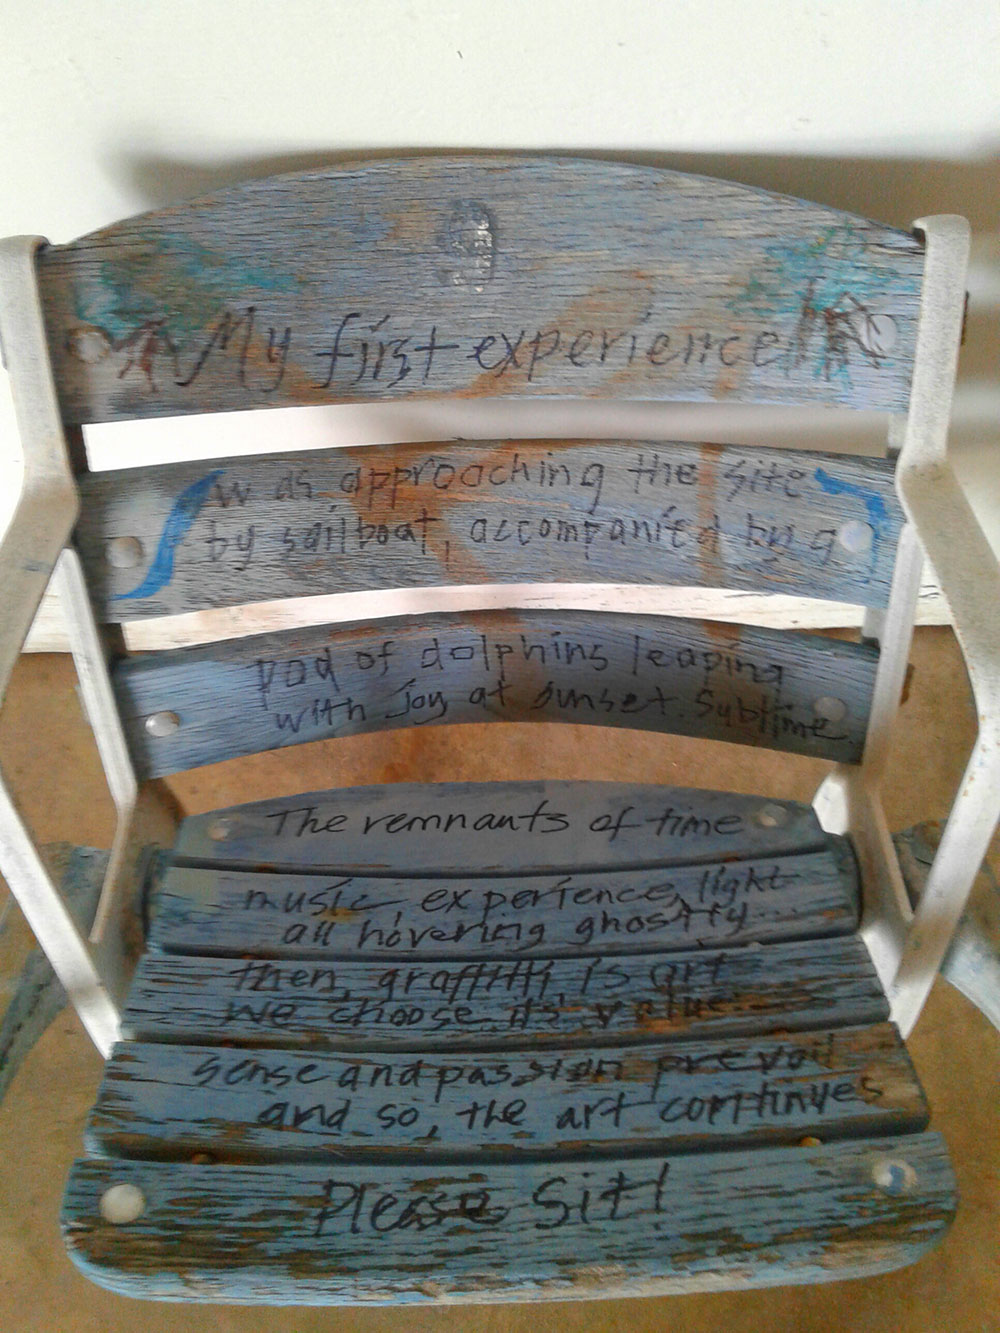 My first experience
was approaching the site
by sailboat, accompanied by a
pod of dolphins leaping
with joy at sunset. Sublime.
The remnants of time
music, experience, light
all hovering ghostly...
then, graffitti is art
we choose it's value...
sense and passion prevail
and so, the art continues
Please Sit!